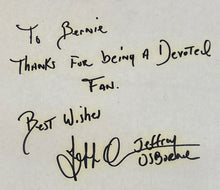 To Bernie
Thanks For being A Devoted
Fan.
Best Wishes
Jeff O Jeffrey
Osborne